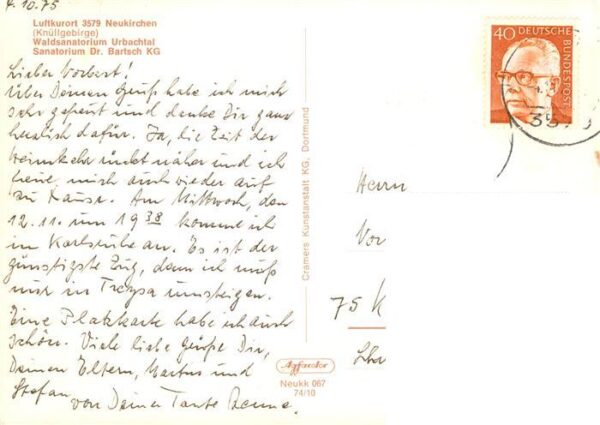 4.10.75
Luftkurort 3579 Neukirchen
(Knüllgebirge)
Waldsanatorium Urbachtal
Sanatorium Dr. Bartsch KG
Lieber Norbert!
Über Deinen Gruß habe ich mich
sehr gefreut und danke Dir ganz
herzlich dafür. Ja, die Zeit der
Heimkehr rückt näher und ich
freue mich auch wieder auf
zu Hause. Am Mittwoch, den
12.11. um 19 38 komme ich
in Karlsruhe an. Es ist der
günstigste Zug, denn ich muß
nur in Treysa umsteigen.
Eine Platzkarte habe ich auch
schon. Viele liebe Grüße Dir,
Deinen Eltern, und
Stefan
von Deiner Tante
Cramers Kunstanstalt KG, Dortmund
Neukk 067
74/10
40 DEUTSCHE
BUNDESPOST
Herrn
75 K